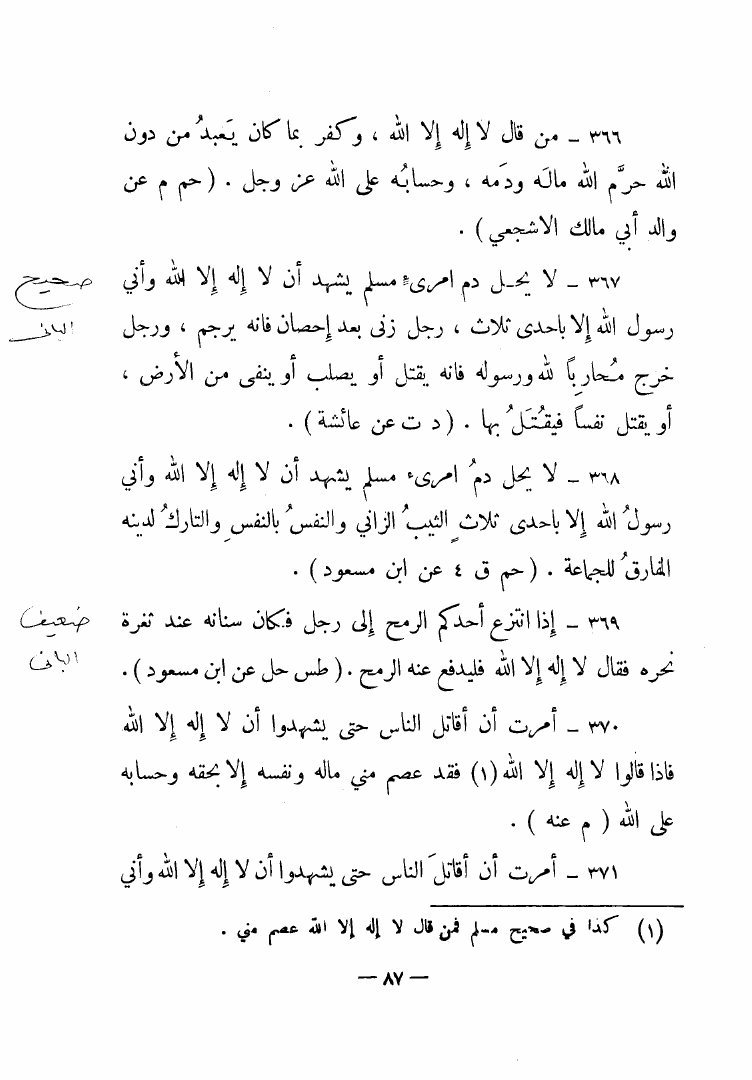 ٣٦٦ ـ من قال لا إله إلا الله ، وكفر بما كان يَعبدُ من دون
الله حرَّم الله مالَه ودَمه ، وحسابُه على الله عز وجل . ( حم م عن
والد أبي مالك الاشجعي ) .
٣٦٧ ـ لا يحـل دم امرىءٍ مسلم يشهد أن لا إله إلا الله وأني
صحيح
رسول الله إلا باحدى ثلاث ، رجل زنى بعد إحصان فانه يرجم ، ورجل
الباني
خرج مُحاربِاً لله ورسوله فانه يقتل أو يصلب أو ينفى من الأرض ،
أو يقتل نفساً فيقُتَلُ بها . ( د ت عن عائشة ) .
٣٦٨ ـ لا يحل دمُ امرىء مسلم يشهد أن لا إله إلا الله وأني
رسولُ الله إلا باحدى ثلاثٍ الثيبُ الزاني والنفسُ بالنفسِ والتاركُ لدينه
المفارقُ للجماعة . ( حم ق ٤ عن ابن مسعود ) .
٣٦٩ ـ إذا انتزع أحدكم الرمح إلى رجل فكان سنانه عند ثغرة
ضعيف
نحره فقال لا إله إلا الله فليدفع عنه الرمح . ( طس حل عن ابن مسعود ) .
الباني
٣٧٠ ـ أمرت أن أقاتل الناس حتى يشهدوا أن لا إله إلا الله
فاذا قالوا لا إله إلا الله (١) فقد عصم مني ماله ونفسه إلا بحقه وحسابه
على الله ( م عنه ) .
٣٧١ ـ أمرت أن أقاتلَ الناس حتى يشهدوا أن لا إله إلا الله وأني
(١) كذا في صحيح مسلم فمن قال لا إله إلا الله عصم مني .
— ٨٧ —